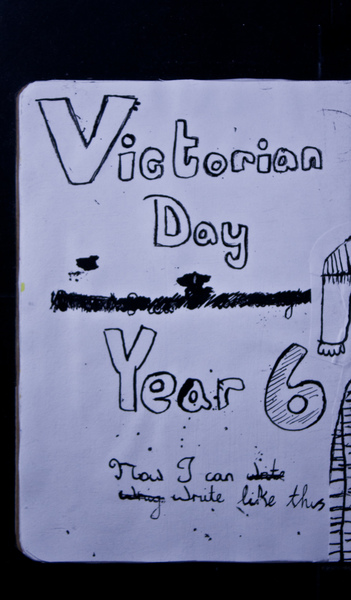 Victorian
Day
Year 6
Now I can wate
whrig write like this